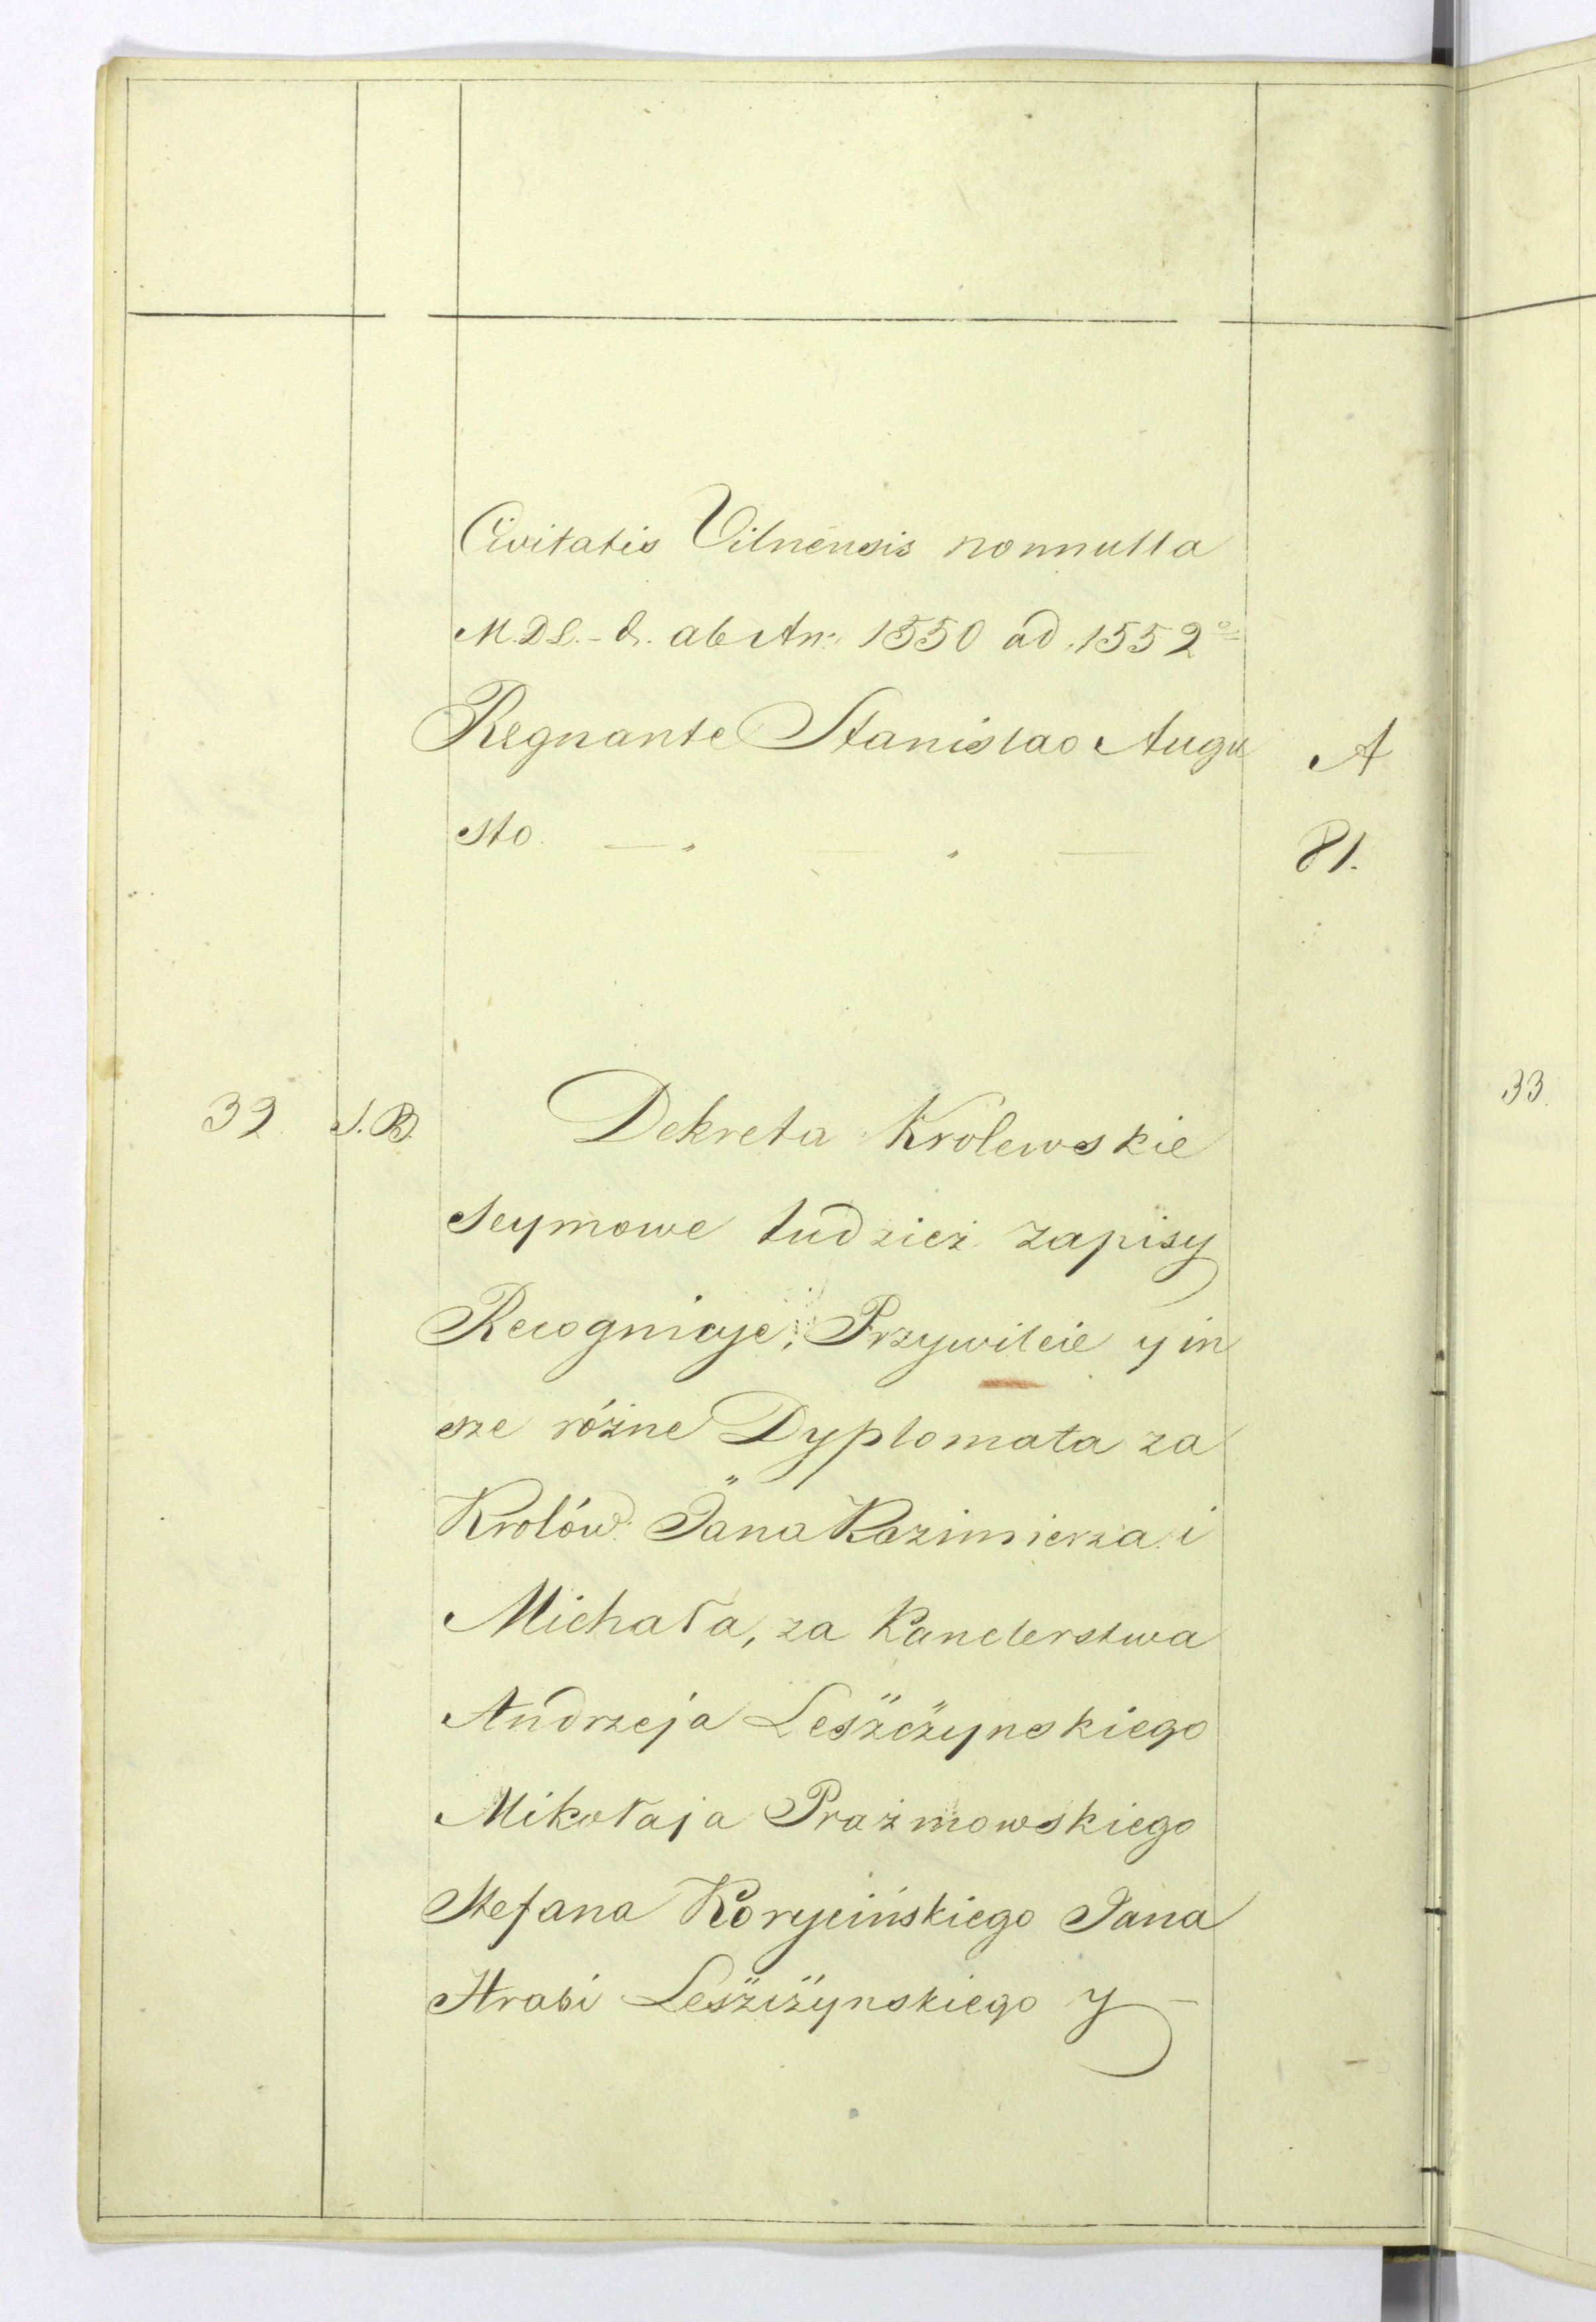 Civitatis Vilnensis nonnulla
M.D.L. - ab An: 1550 ad 1552º
Regnante Stanislao Augu
sto. — „ — „ —
A
81.
32. S.B. Dekreta Krolewskie
seymowe tudzież zapisy
Recognicye, Przywileie y in
sze różne Dyplomata za
Krolów Jana Kazimierza i
Michała, za Kanclerstwa
Andrzeja Leszczynskiego
Mikołaja Prażmowskiego
Stefana Korycińskiego Jana
Hrabi Leszczynskiego y —
33.